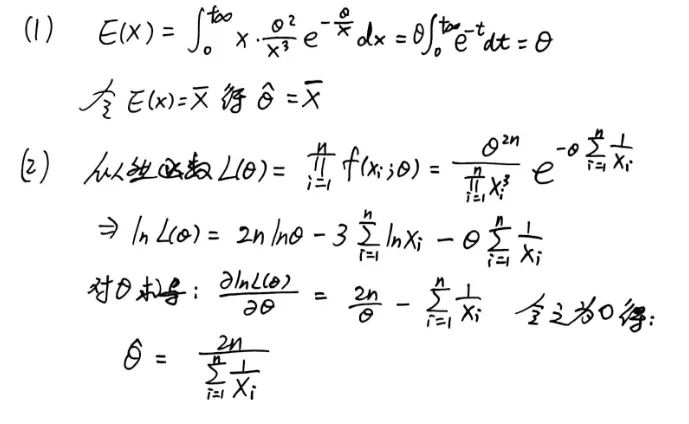 (1) E(X) = ∫₀^{+∞} x·\frac{θ²}{x³} e^{-\frac{θ}{x}} dx = θ∫₀^{+∞} e^{-t} dt = θ
令 E(x) = \overline{X} 得 \hat{θ} = \overline{X}
(2) 似然函数 L(θ) = \prod_{i=1}^{n} f(x_i;θ) = \frac{θ^{2n}}{\prod_{i=1}^{n} x_i^3} e^{-θ\sum_{i=1}^{n}\frac{1}{x_i}}
⇒ ln L(θ) = 2n lnθ - 3\sum_{i=1}^{n} ln x_i - θ\sum_{i=1}^{n}\frac{1}{x_i}
对θ求导: \frac{∂lnL(θ)}{∂θ} = \frac{2n}{θ} - \sum_{i=1}^{n}\frac{1}{x_i} 令之为0得:
\hat{θ} = \frac{2n}{\sum_{i=1}^{n}\frac{1}{X_i}}